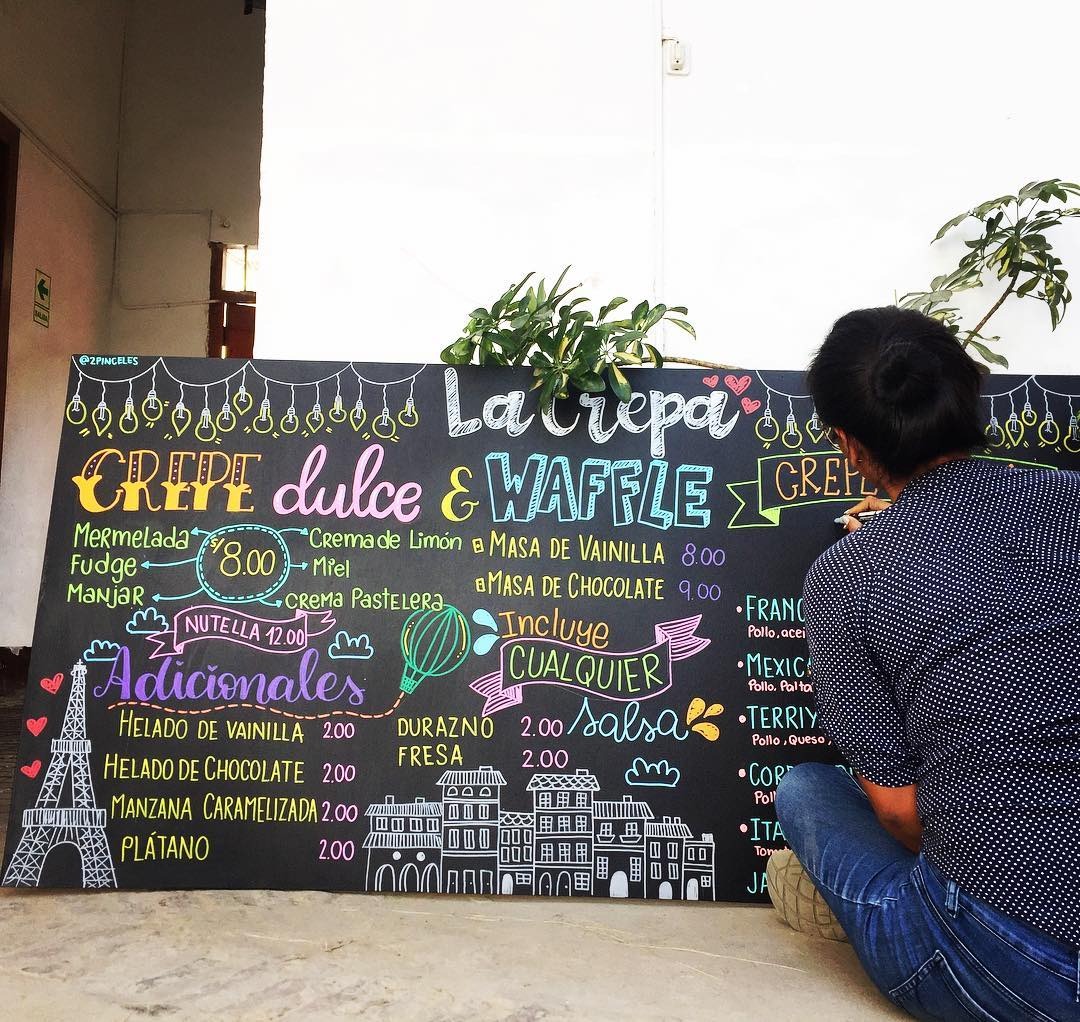 @2PINCELES
La Crepa
CREPE dulce & WAFFLE
Mermelada
Fudge
Manjar
S/ 8.00
Crema de Limón
Miel
CREMA PASTELERA
NUTELLA 12.00
MASA DE VAINILLA 8.00
MASA DE CHOCOLATE 9.00
Incluye
CUALQUIER
Salsa
Adicionales
HELADO DE VAINILLA 2.00
HELADO DE CHOCOLATE 2.00
MANZANA CARAMELIZADA 2.00
PLÁTANO 2.00
DURAZNO 2.00
FRESA 2.00
CREPE
Pollo,
MEXIC
Pollo, Palta
TERRIY
Pollo, Queso,
ITA
JA
SALIDA